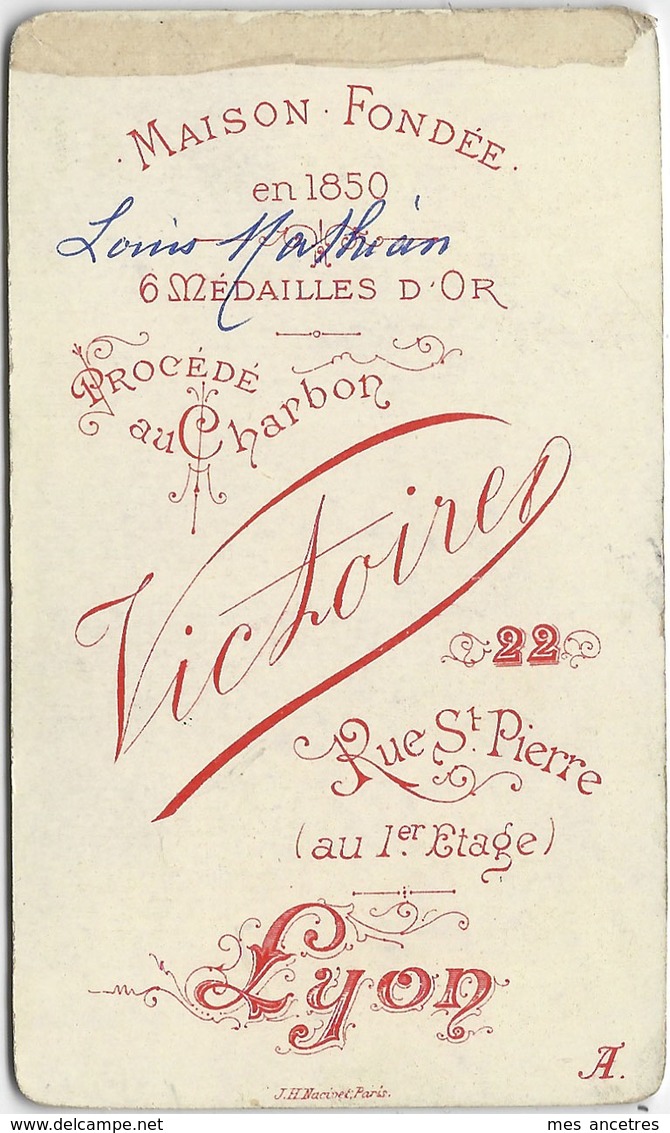 MAISON · FONDÉE.
en 1850
Louis Mathian
6 MÉDAILLES D'OR
PROCÉDÉ
au Charbon
Victoire
22
Rue St. Pierre
(au 1.er Etage)
Lyon
A.
J.H. Nacivet, Paris.
mes ancetres